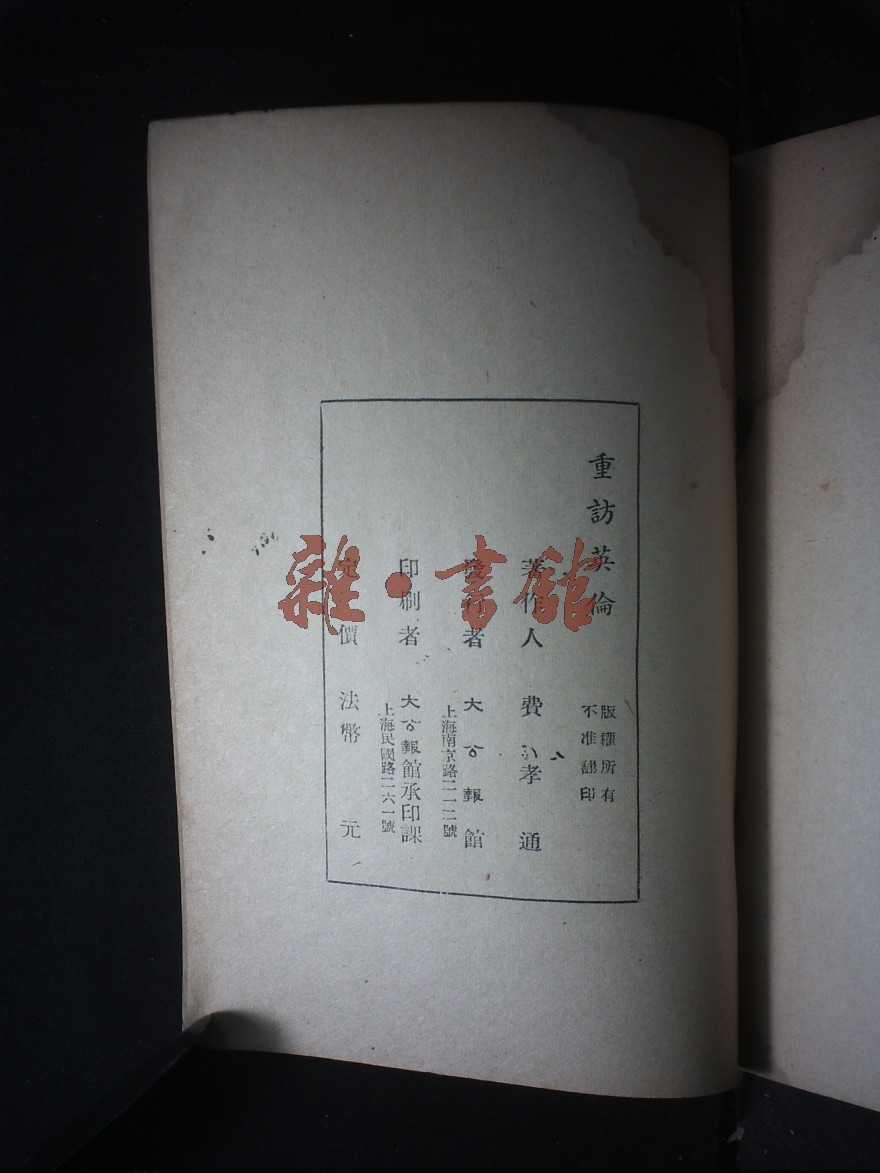 重訪英倫
版權所有
不准翻印
著作人 費孝通
發行者 大公報館
上海南京路二一二號
印刷者 大公報館承印課
上海民國路二六一號
定價 法幣 元
雜·書館